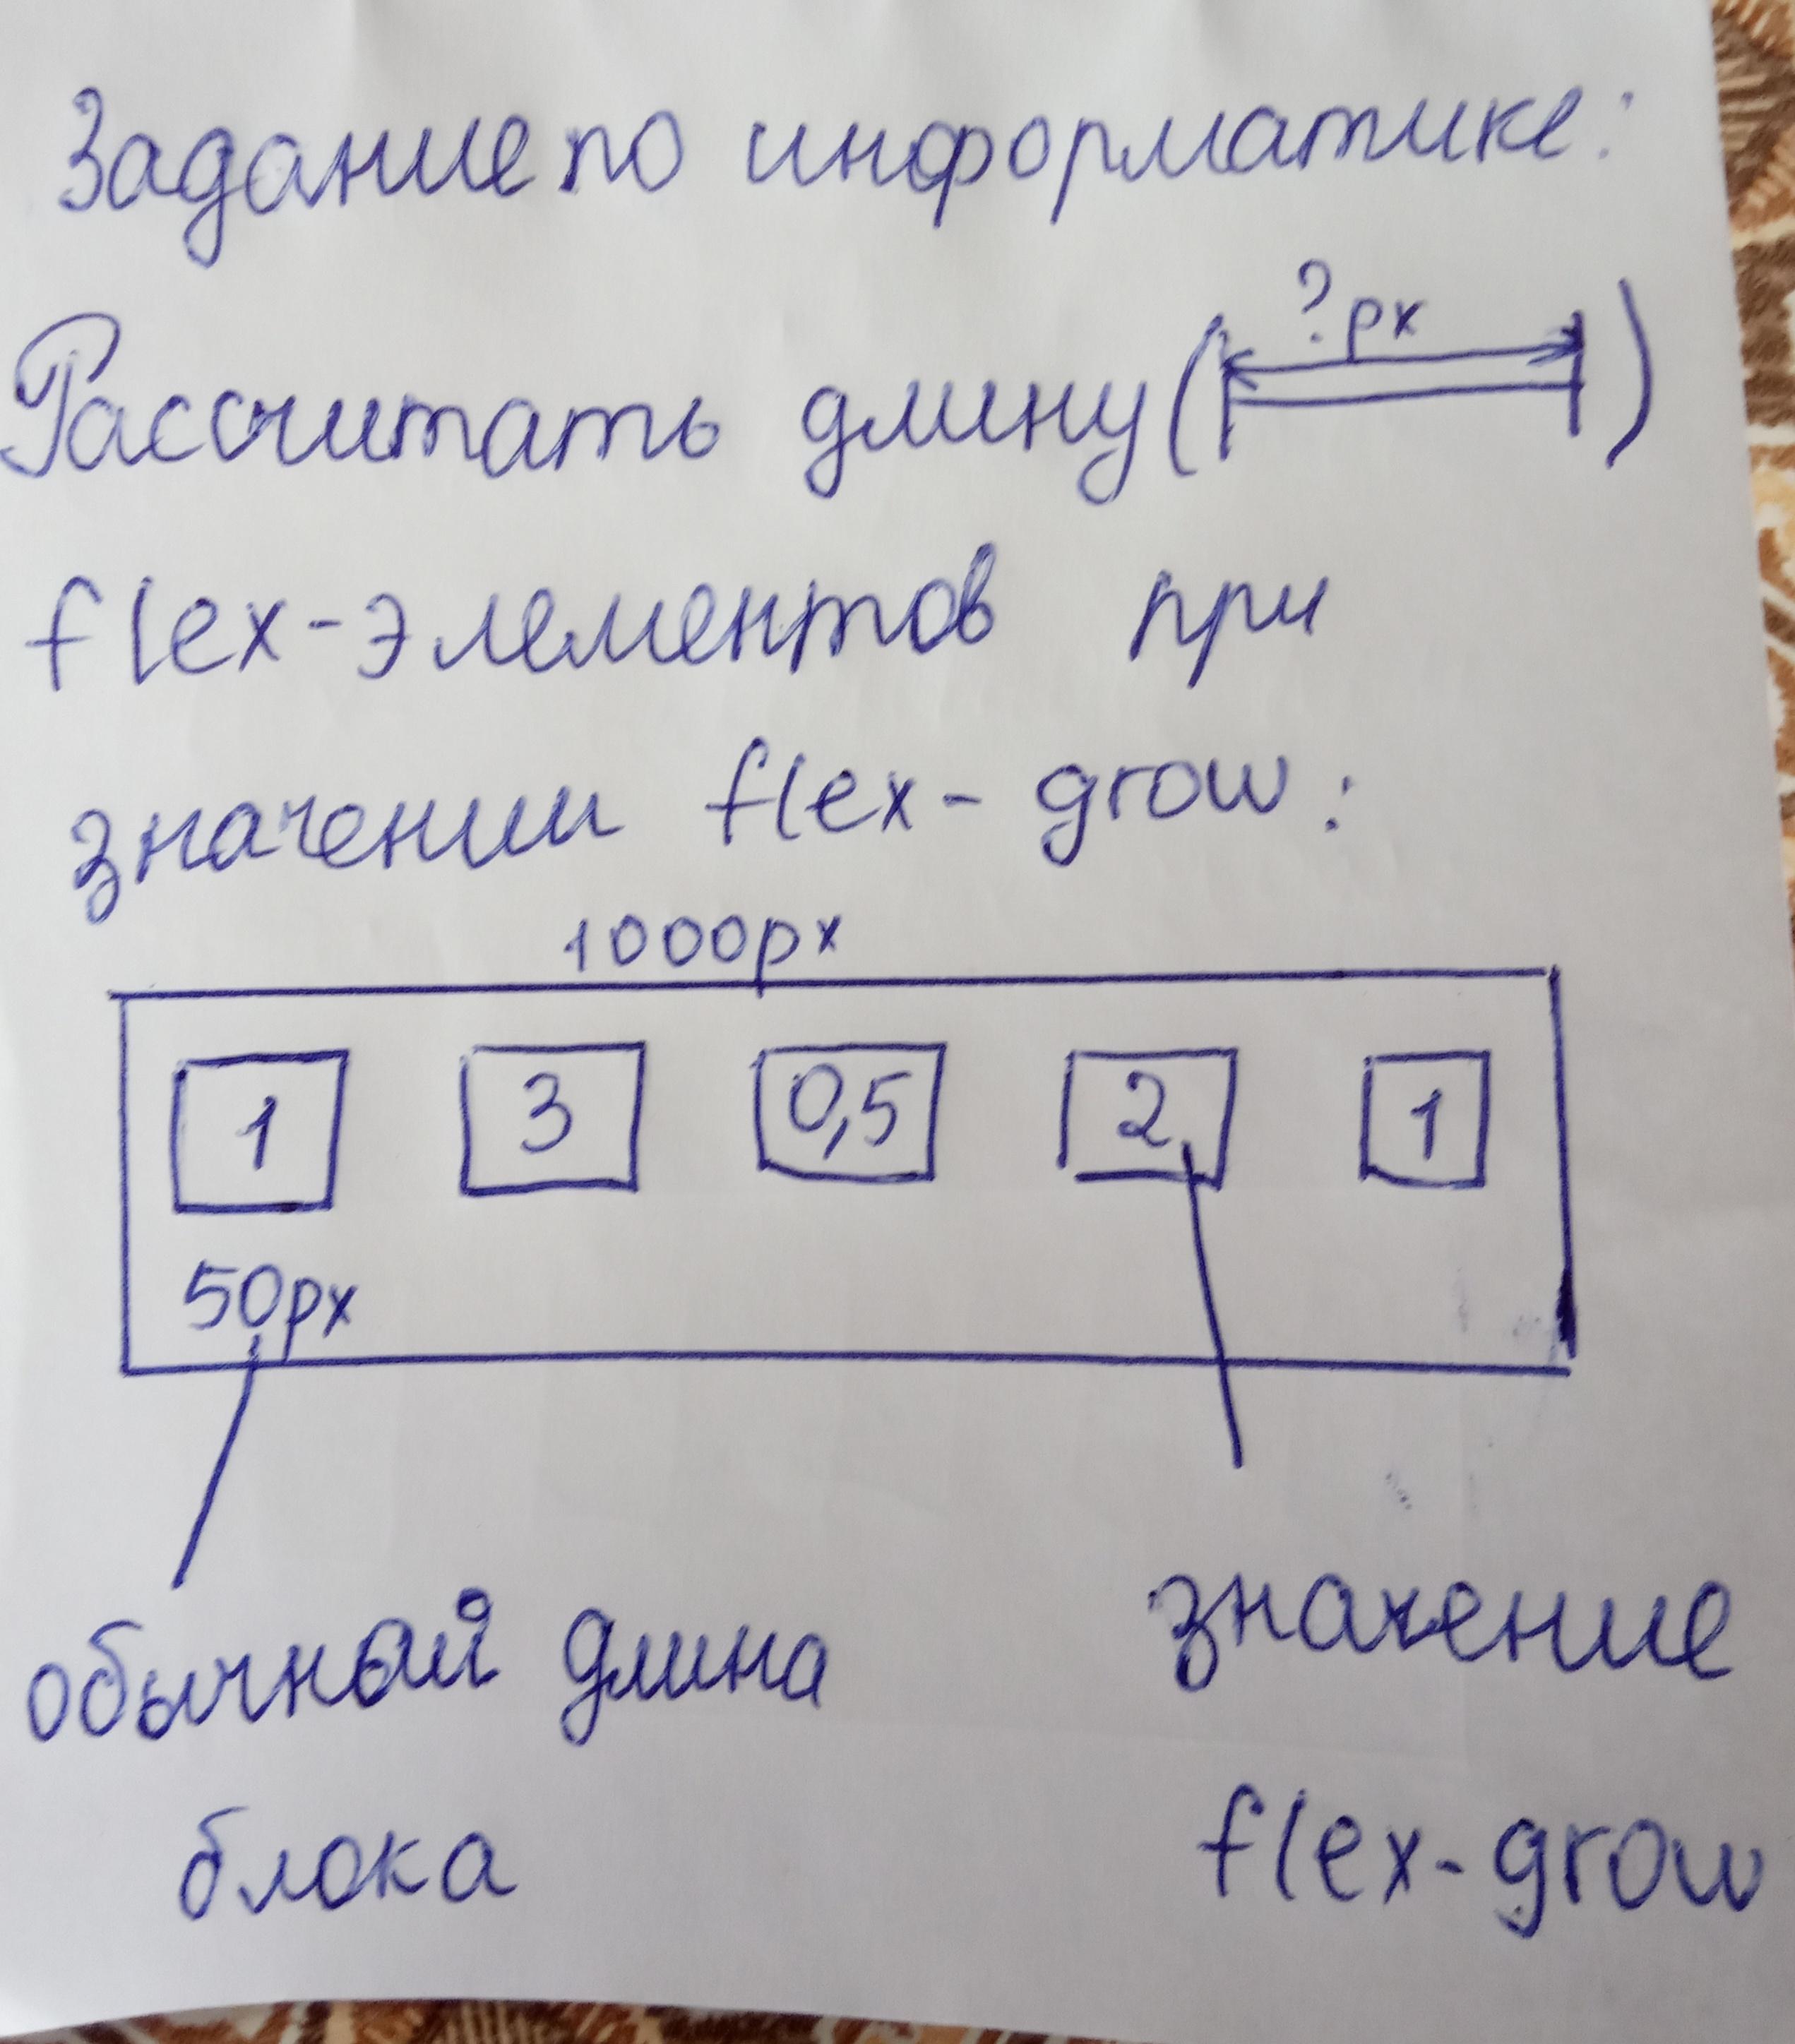 Задание по информатике:
Рассчитать длину (?px)
flex-элементов при
значении flex-grow:
1000px
1 3 0,5 2 1
50px
обычный длина значение
блока flex-grow